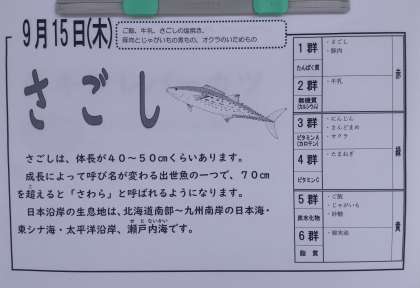 9月15日(木)
ご飯、牛乳、さごしの塩焼き、
豚肉とじゃがいもの煮もの、オクラのいためもの
さごし
さごしは、体長が40～50cmくらいあります。
成長によって呼び名が変わる出世魚の一つで、70cm
を超えると「さわら」と呼ばれるようになります。
日本沿岸の生息地は、北海道南部～九州南岸の日本海・
東シナ海・太平洋沿岸、瀬戸内海です。
せとないかい
1群
たんぱく質
・さごし
・豚肉
2群
無機質
(カルシウム)
・牛乳
赤
3群
ビタミンA
(カロテン)
・にんじん
・さんどまめ
・オクラ
4群
ビタミンC
・たまねぎ
緑
5群
炭水化物
・ご飯
・じゃがいも
・砂糖
6群
脂質
黄